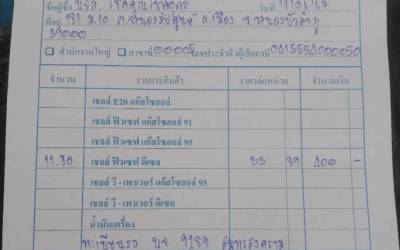 ชื่อผู้ซื้อ บจก. วันที่ 18/04/67
ที่อยู่ 181 ม.10 ต.หนองบัว อ.เมือง จ.หนองบัวลำภู
39000
สำนักงานใหญ่ สาขาที่ 00005 เลขประจำตัวผู้เสียภาษี
จำนวน รายการสินค้า ราคาต่อหน่วย จำนวนเงิน
เชลล์ E20 แก๊สโซฮอล์
เชลล์ ฟิวเซฟ แก๊สโซฮอล์ 91
เชลล์ ฟิวเซฟ แก๊สโซฮอล์ 95
11.80 เชลล์ ฟิวเซฟ ดีเซล 33 89 400 -
เชลล์ วี - เพาเวอร์ แก๊สโซฮอล์ 95
เชลล์ วี - เพาเวอร์ ดีเซล
น้ำมันเครื่อง
ทะเบียนรถ บจ 9289 สมุทรสงคราม